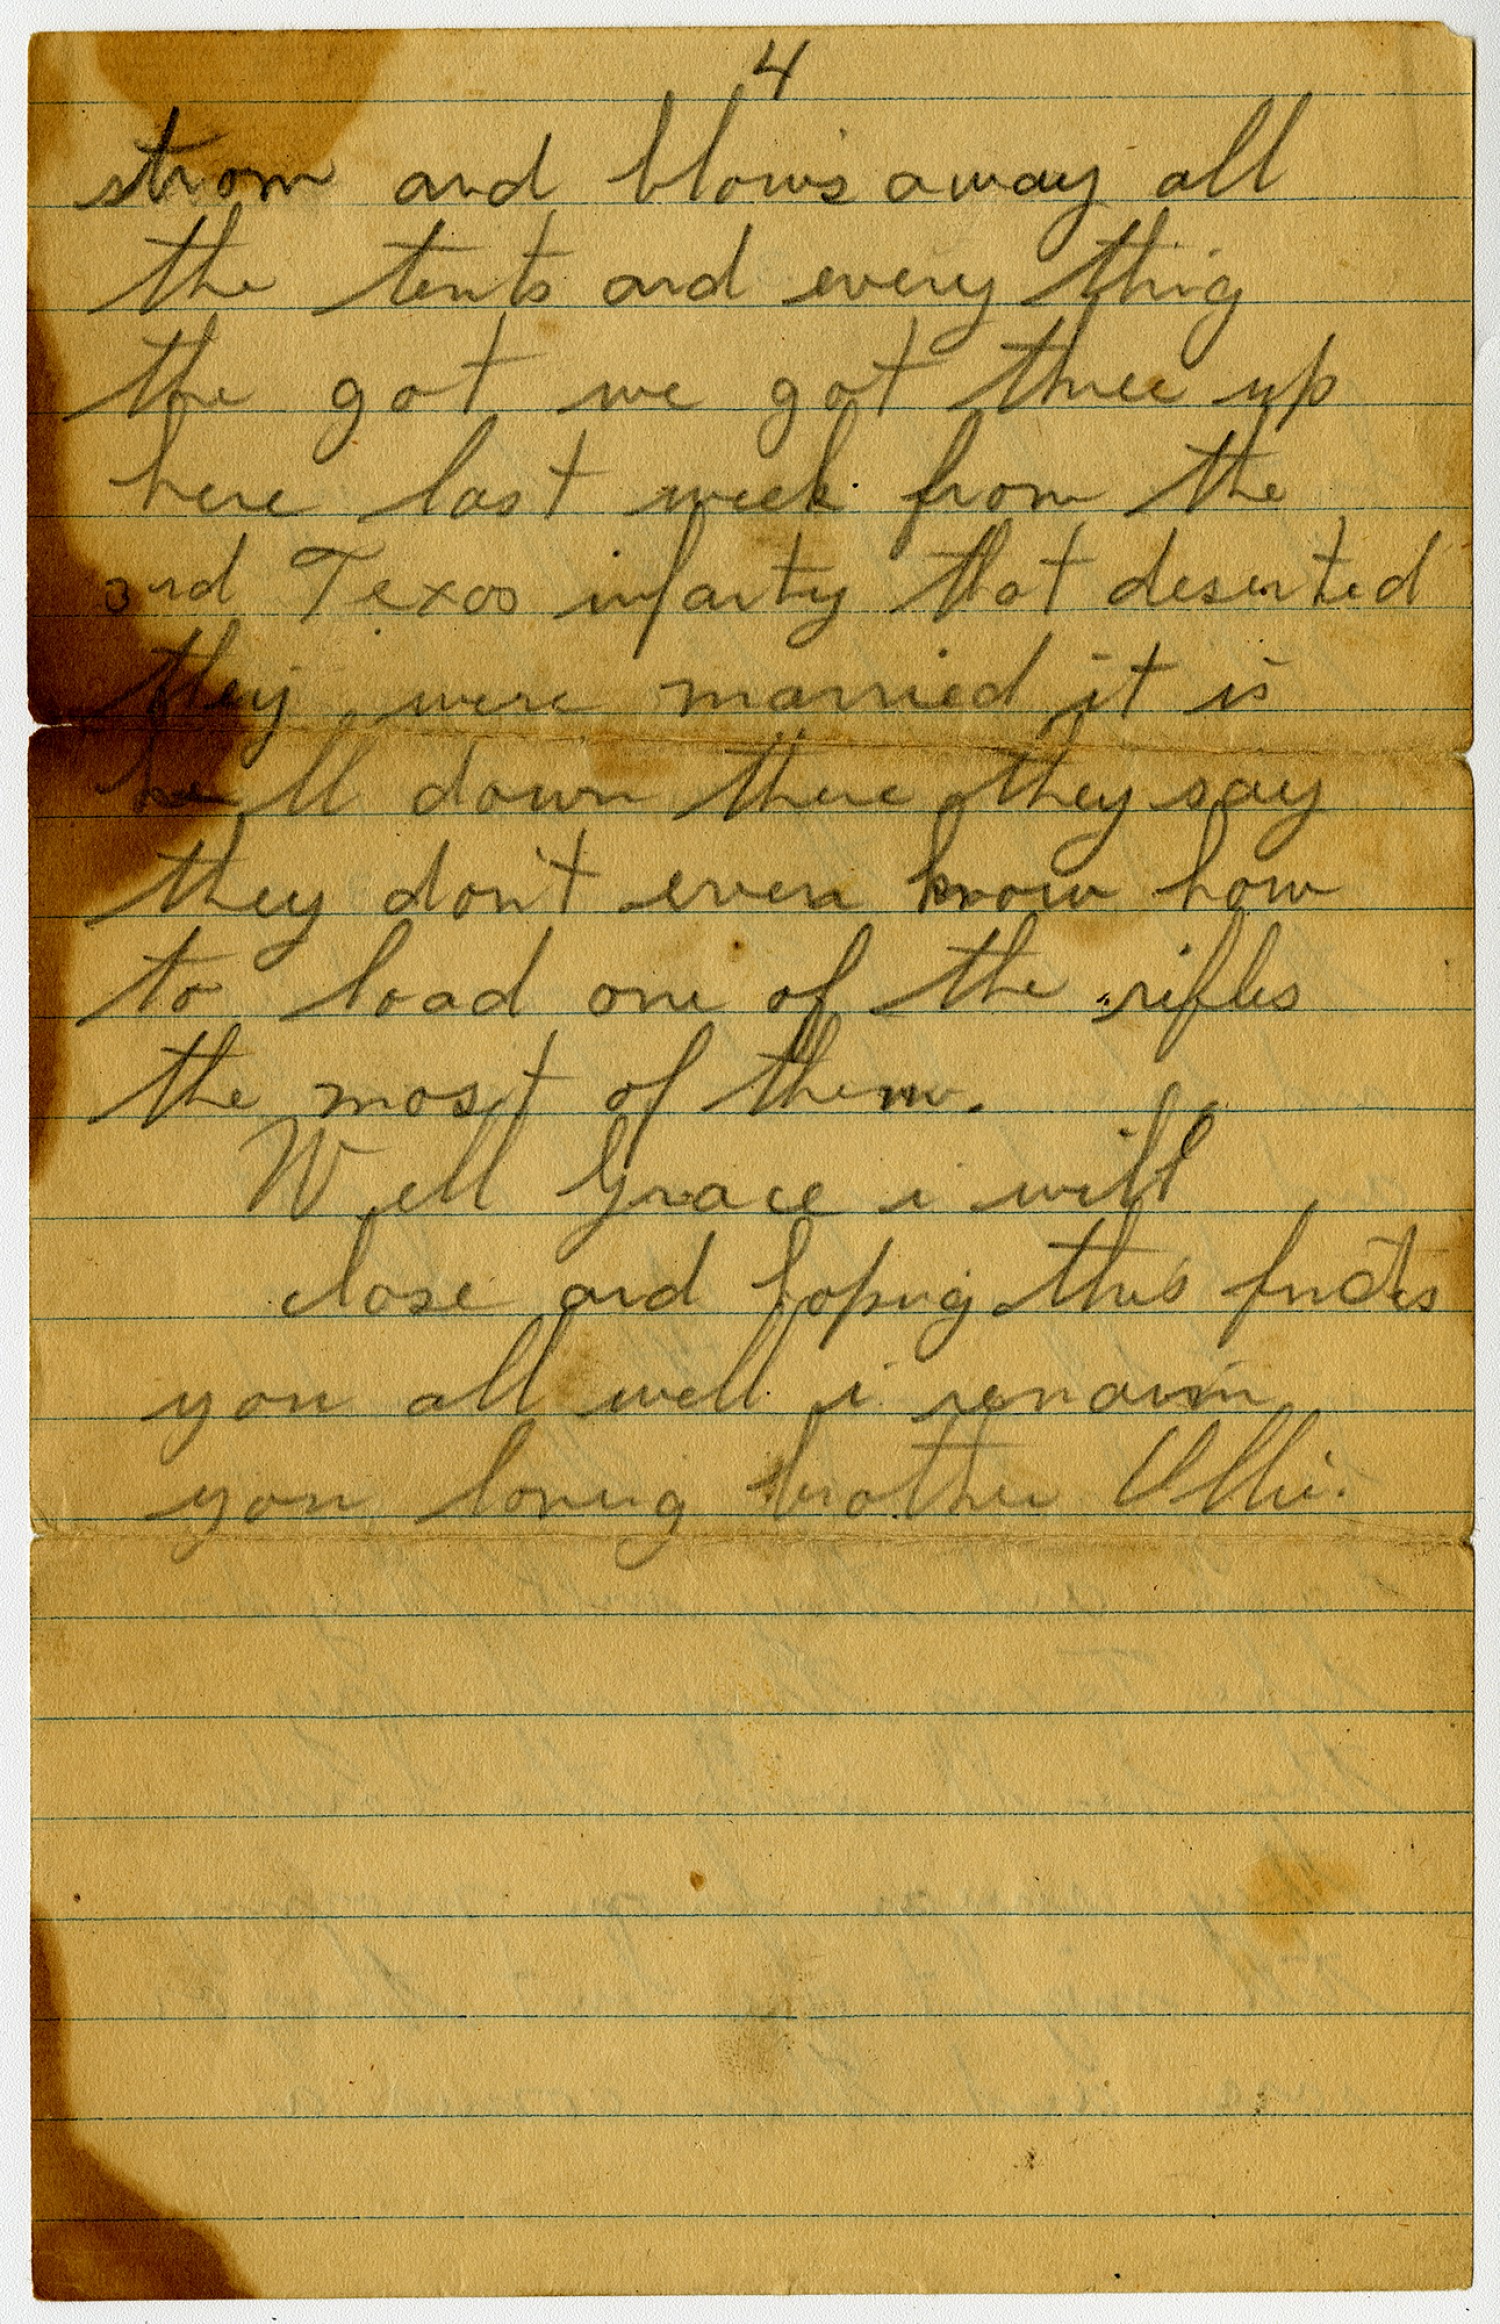 4
strom and blows away all
the tents and every thing
the got we got three up
here last week from the
3rd Texas infanty that deserted
they were married it is
hell down there they say
they don't even know how
to load one of the rifles
the most of them.
Well Grace i will
close and hoping this findes
you all well i remain
your loving brother Ollie.